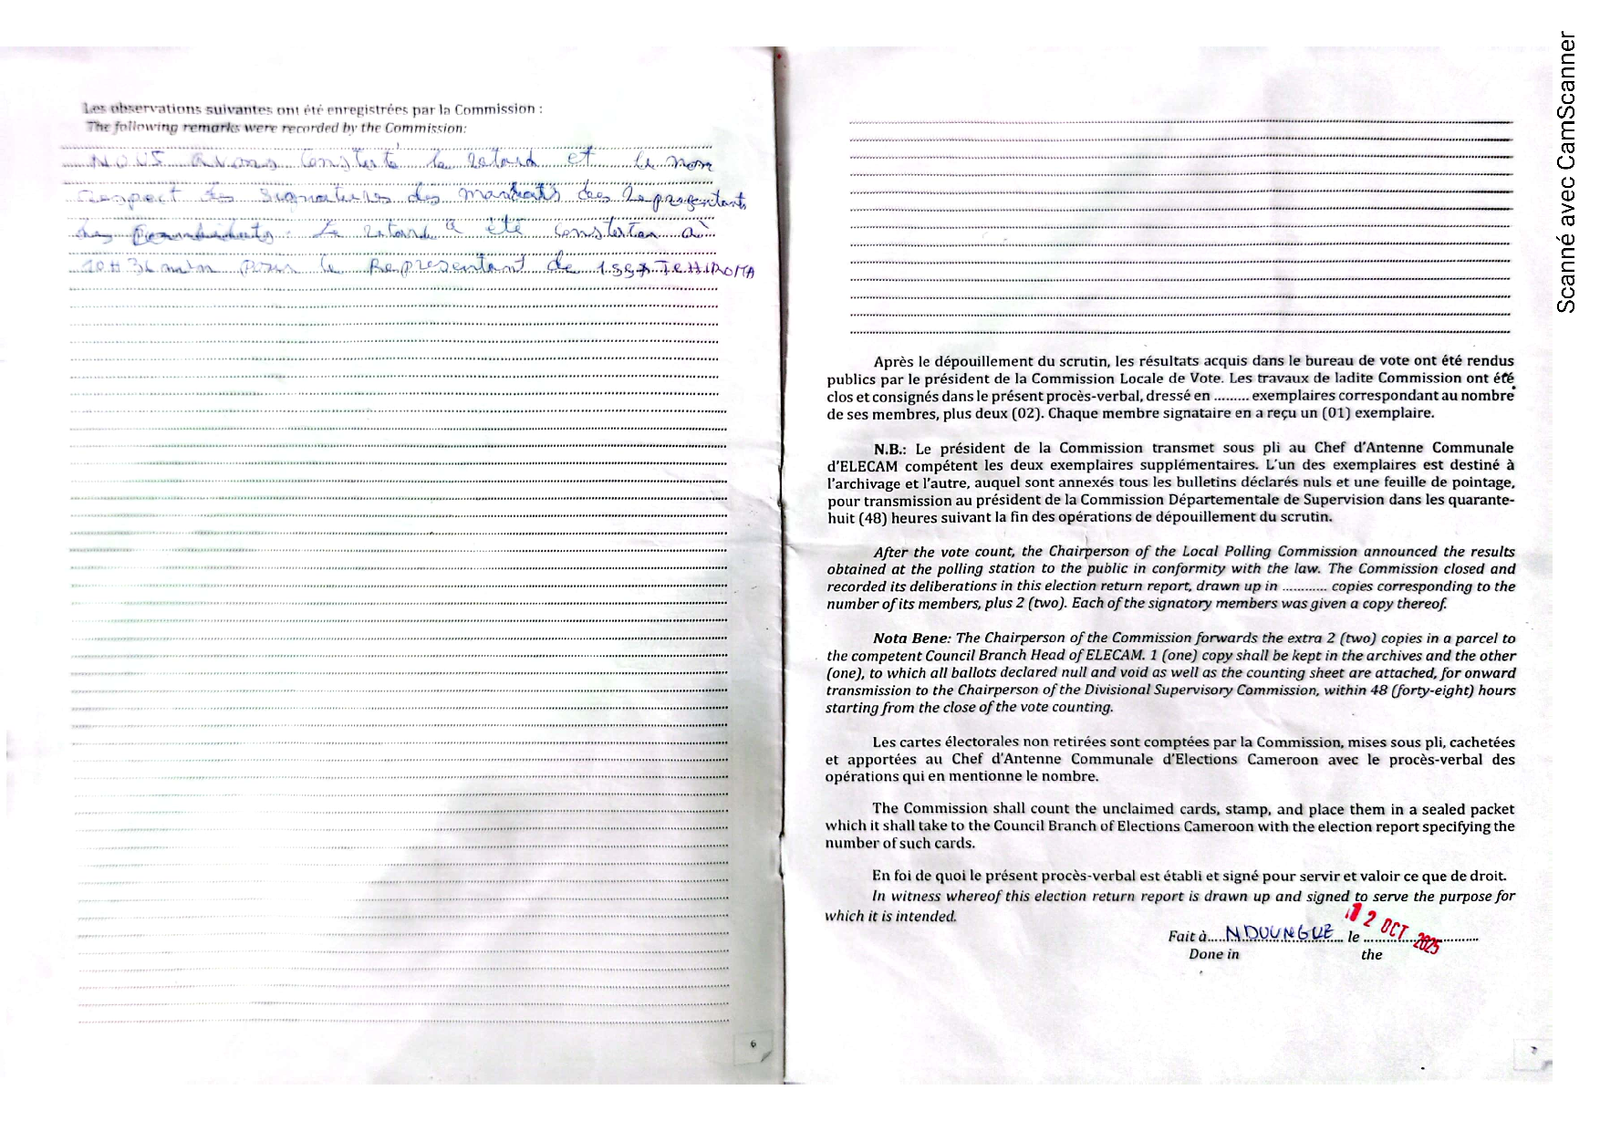 Les observations suivantes ont été enregistrées par la Commission :
The following remarks were recorded by the Commission:
NOUS avons constaté le retard et le non
respect des signatures des mandats des Representants
des candidats. Le retard a été constaton à
10H 36 min pour le Representant de ISSA TCHIROMA
6
Après le dépouillement du scrutin, les résultats acquis dans le bureau de vote ont été rendus
publics par le président de la Commission Locale de Vote. Les travaux de ladite Commission ont été
clos et consignés dans le présent procès-verbal, dressé en ......... exemplaires correspondant au nombre
de ses membres, plus deux (02). Chaque membre signataire en a reçu un (01) exemplaire.
N.B.: Le président de la Commission transmet sous pli au Chef d'Antenne Communale
d'ELECAM compétent les deux exemplaires supplémentaires. L'un des exemplaires est destiné à
l'archivage et l'autre, auquel sont annexés tous les bulletins déclarés nuls et une feuille de pointage,
pour transmission au président de la Commission Départementale de Supervision dans les quarante-
huit (48) heures suivant la fin des opérations de dépouillement du scrutin.
After the vote count, the Chairperson of the Local Polling Commission announced the results
obtained at the polling station to the public in conformity with the law. The Commission closed and
recorded its deliberations in this election return report, drawn up in ........... copies corresponding to the
number of its members, plus 2 (two). Each of the signatory members was given a copy thereof.
Nota Bene: The Chairperson of the Commission forwards the extra 2 (two) copies in a parcel to
the competent Council Branch Head of ELECAM. 1 (one) copy shall be kept in the archives and the other
(one), to which all ballots declared null and void as well as the counting sheet are attached, for onward
transmission to the Chairperson of the Divisional Supervisory Commission, within 48 (forty-eight) hours
starting from the close of the vote counting.
Les cartes électorales non retirées sont comptées par la Commission, mises sous pli, cachetées
et apportées au Chef d'Antenne Communale d'Elections Cameroon avec le procès-verbal des
opérations qui en mentionne le nombre.
The Commission shall count the unclaimed cards, stamp, and place them in a sealed packet
which it shall take to the Council Branch of Elections Cameroon with the election report specifying the
number of such cards.
En foi de quoi le présent procès-verbal est établi et signé pour servir et valoir ce que de droit.
In witness whereof this election return report is drawn up and signed to serve the purpose for
which it is intended.
Fait à NDOUNGUE le 12 OCT 2025
Done in the
7
Scanné avec CamScanner